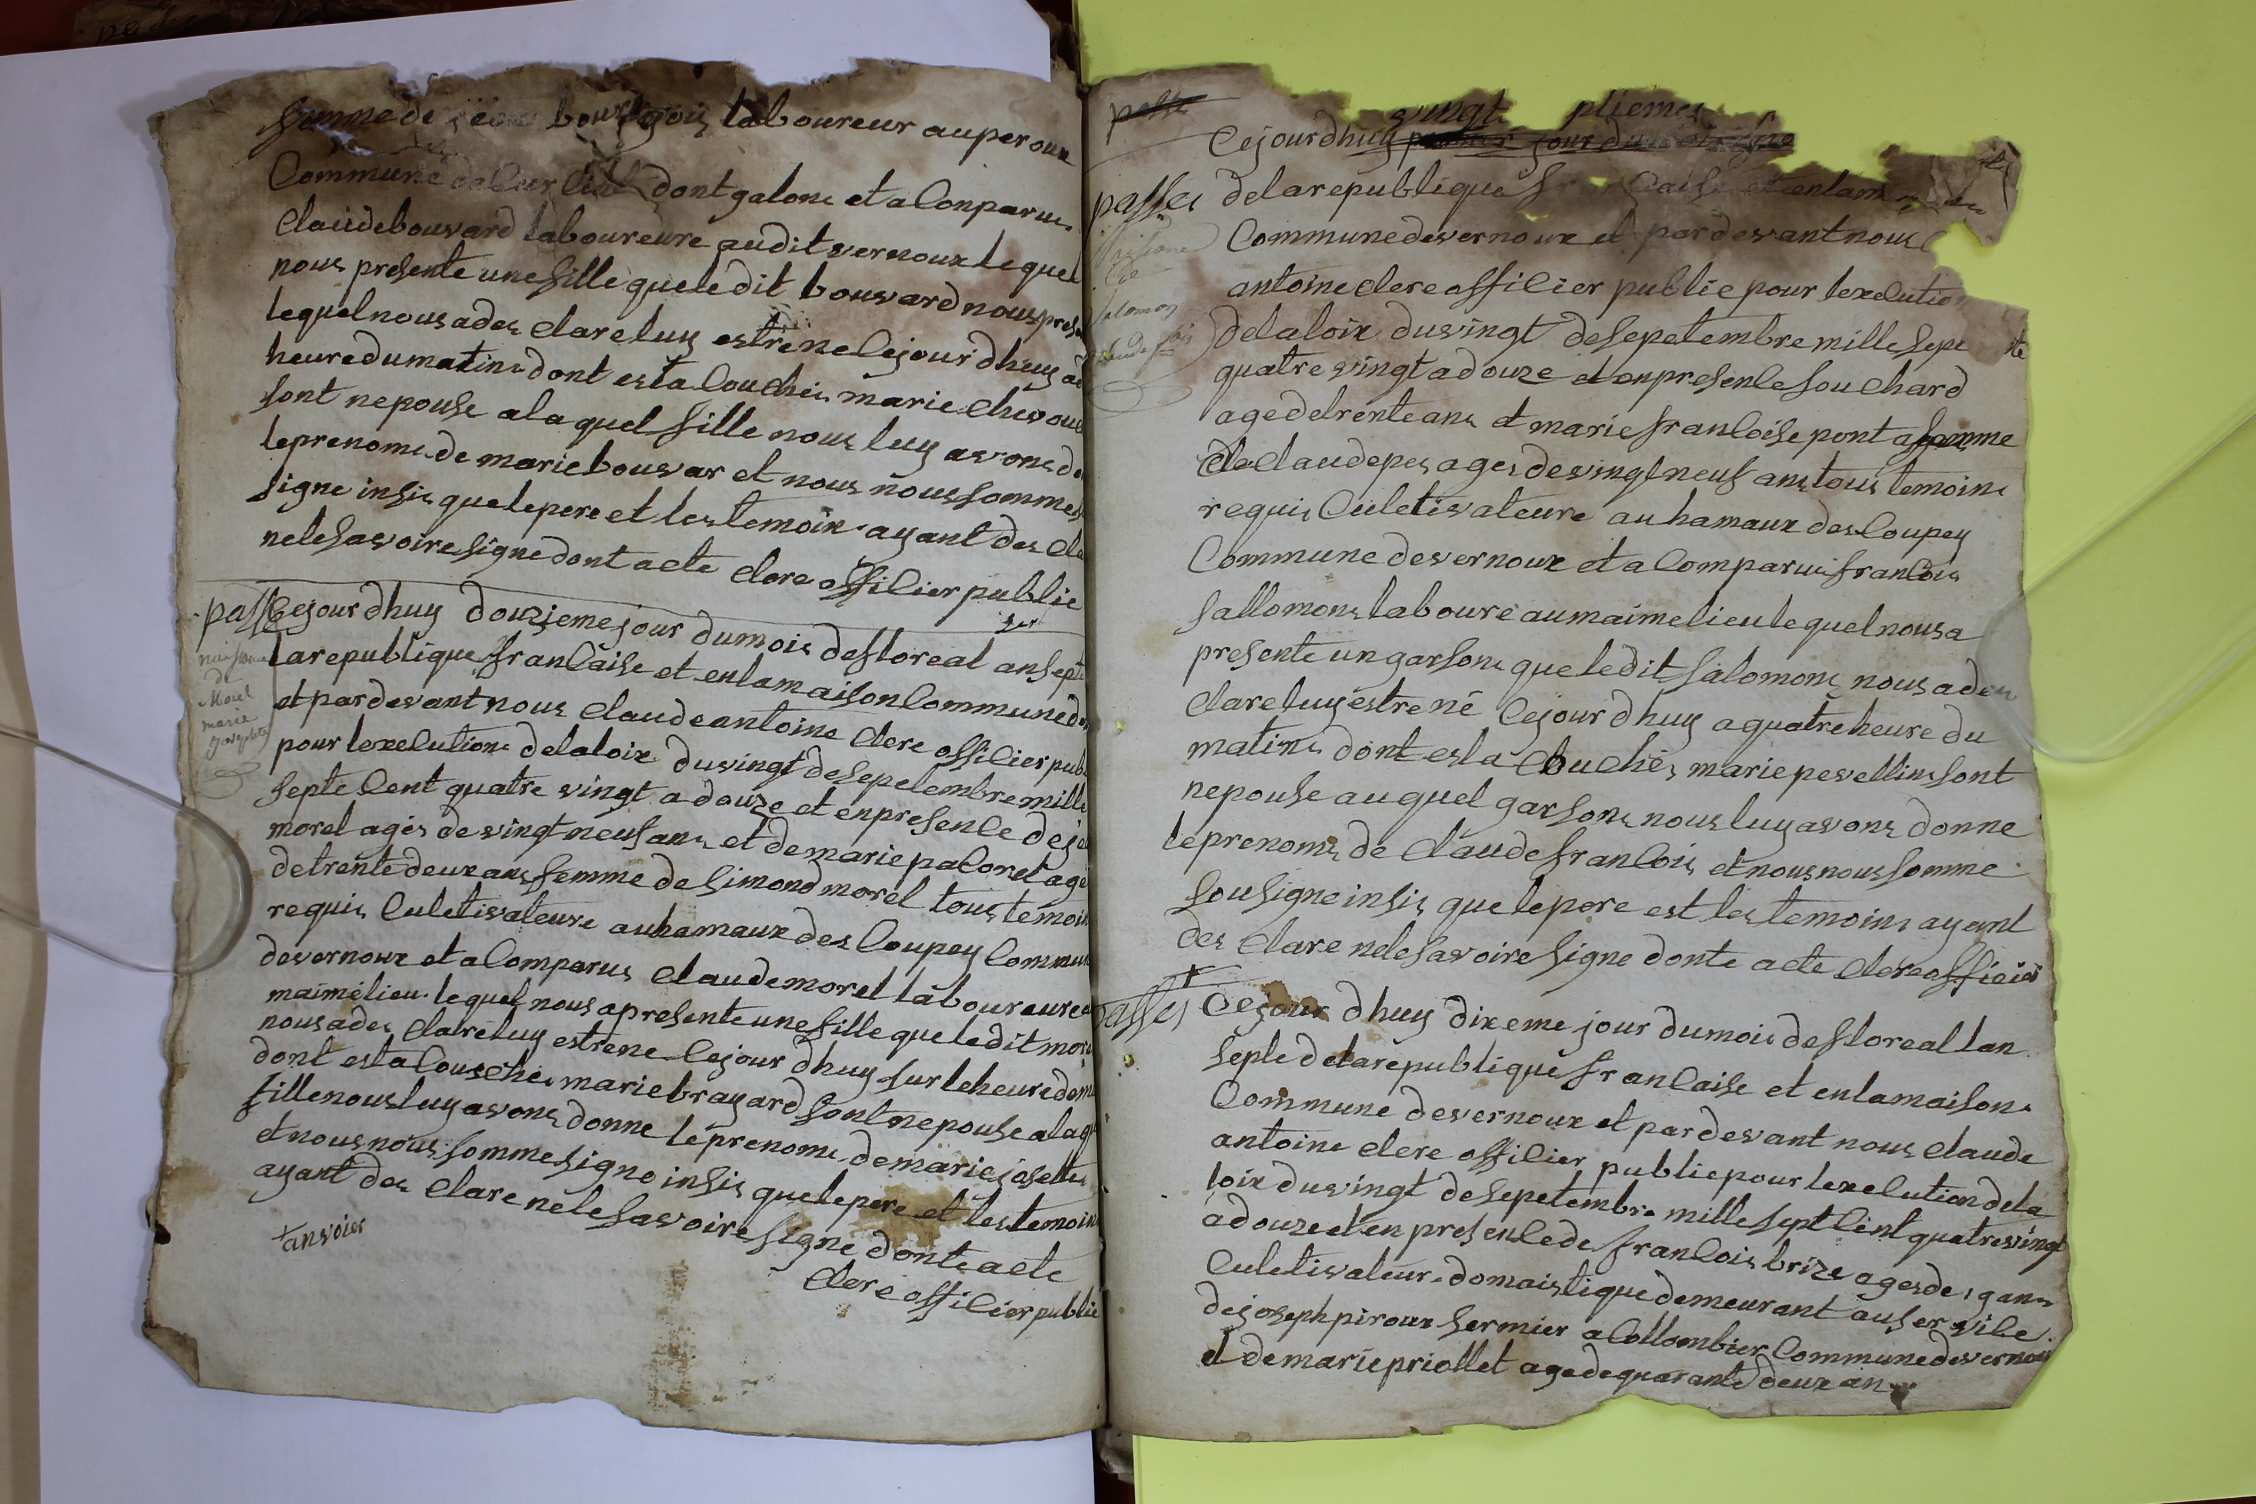 femme de jean bourgois laboureur au peroux
Commune de dont galons et a Conparus
Claüde bouvard laboureure audit vernoux lequel
nous presente une fille que ledit bouvard nous prese
lequel nous a des clare luy estre ne Cejour dhuy a
heure du matins dont est a Couchés marie
sont nepouse a la quel fille nous luy avons do
leprenoms de marie bouvar et nous nous sommes
signe insis que lepere et les temoix ayant des cla
nele savoire signe dont acte clere offilier public
passe
Cejour dhuy douzieme jour du mois defloreal an septe
la republique franCaise et enlamaison Commune de
et pardevant nous claude antoine clere offilier pub
pour lexelutions delaloix du vingt de sepetembre mille
septe Cent quatre vingt a douze et enpresenle de je
morel agés de vingt neuf ans et de marie paloret age
de trente deux ans femme de simond morel tous temoin
requis Culetivateure au hamaux des Coupey Commun
devernoux et a Comparus claude morel laboureure au
maimelieu lequel nous a presente une fille que ledit more
nous a des clare luy estrene Cejour dhuy sur le heure de
dont est a Couschés marie brayard sont nepouse a laq
fille nous luy avons donne leprenoms de marie josette
et nous nous somme signe insis que lepere et les temoins
ayant des clare nele savoire signe donte acte
clere offilier public
naissance
de
Morel
marie
josephte
passe
vingt pliemes
Cejour dhuy premier jour du
passes
delarepublique franCaise et enlam
Commune devernoux et par devant nous C
antoine clere offilier publie pour lexelution
delaloix du vingt de sepetembre mille septe
quatre vingt a douze et enpresenle fouChard
age de trente ans et marie franCoise pont a femme
de Claude pes ages de vingt neuf ans tous temoins
requis Culetivateure au hamaux des Coupey
Commune devernoux et a Comparus franCois
sallomons laboure au maime lieu lequel nous a
presente un garsons que ledit salomons nous a des
clare luy estre né Cejour dhuy a quatre heure du
matins dont est a Couchés marie pevellins sont
nepouse au quel garsons nous luy avons donne
leprenoms de claude franCois et nous nous somme
sousigne insis que lepere est les temoins ayant
des clare nele savoire signe donte acte clere officié
naissance
de
salomon
claude fois
passes
Cejour dhuy dixeme jour du mois de floreal lan
septe de la republique franCaise et en la maisons
Commune devernoux et pardevant nous claude
antoine clere offilier publie pour lexelution dela
loix du vingt de sepetembre mille sept Cent quatre vingt
a douze et en presenle de franCois brize ages de ans
Culetivateur domaistique demeurant au servile
de joseph piroux fermier a Collombier Commune devernoux
et de marie priollet age de quarante deux ans